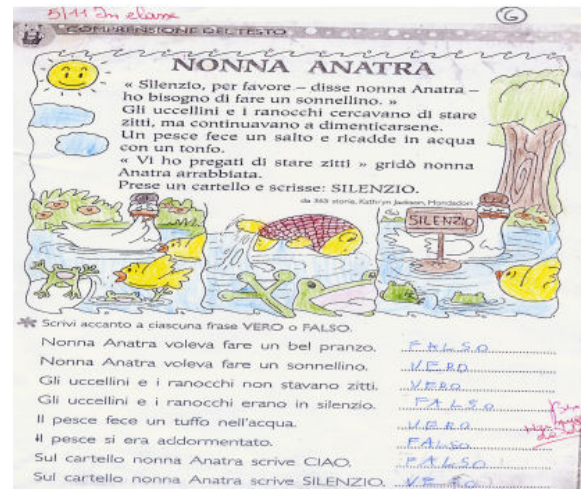 5/11 In classe
6
COMPRENSIONE DEL TESTO
NONNA ANATRA
« Silenzio, per favore – disse nonna Anatra –
ho bisogno di fare un sonnellino. »
Gli uccellini e i ranocchi cercavano di stare
zitti, ma continuavano a dimenticarsene.
Un pesce fece un salto e ricadde in acqua
con un tonfo.
« Vi ho pregati di stare zitti » gridò nonna
Anatra arrabbiata.
Prese un cartello e scrisse: SILENZIO.
da 365 storie, Kathryn Jackson, Mondadori
SILENZIO
Scrivi accanto a ciascuna frase VERO o FALSO.
Nonna Anatra voleva fare un bel pranzo. FALSO
Nonna Anatra voleva fare un sonnellino. VERO
Gli uccellini e i ranocchi non stavano zitti. VERO
Gli uccellini e i ranocchi erano in silenzio. FALSO
Il pesce fece un tuffo nell'acqua. VERO
Il pesce si era addormentato. FALSO
Sul cartello nonna Anatra scrive CIAO. FALSO
Sul cartello nonna Anatra scrive SILENZIO. VERO